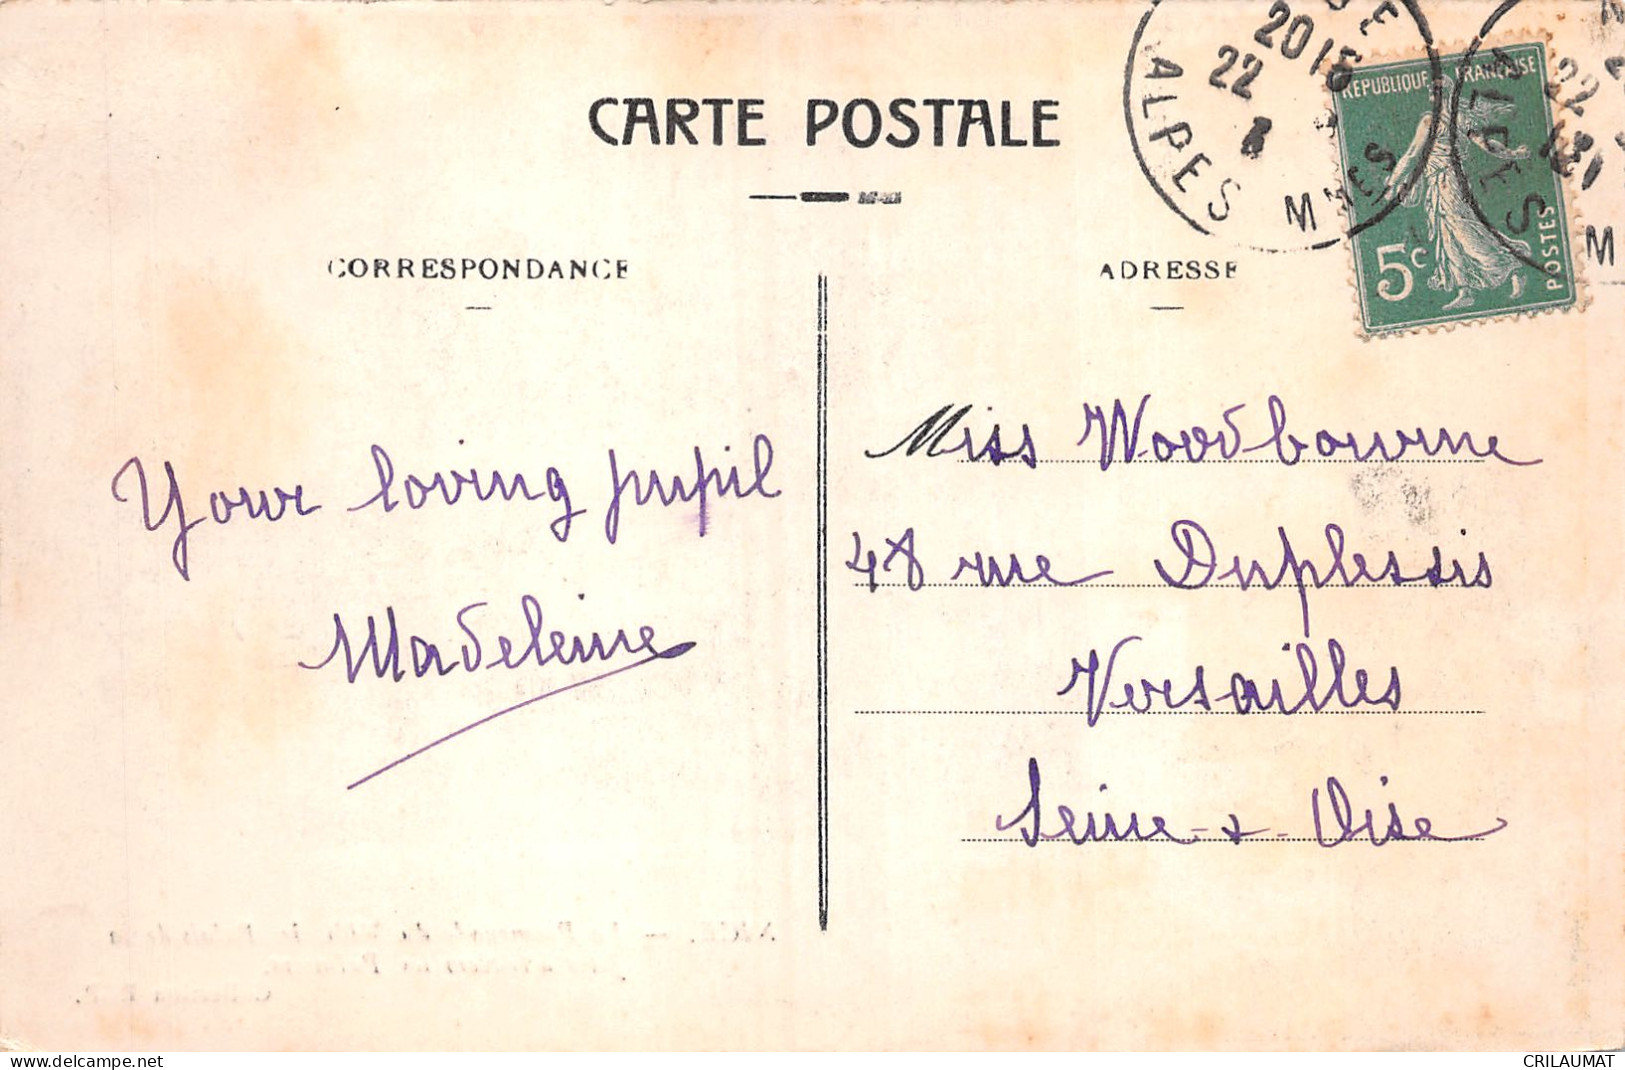 CARTE POSTALE
CORRESPONDANCE
ADRESSE
RÉPUBLIQUE FRANÇAISE
5c
POSTES
20 15
22
ALPES MMES
22
ALPES M
Your loving pupil
Madeleine
Miss Woodbourne
48 rue Duplessis
Versailles
Seine & Oise
www.delcampe.net
CRILAUMAT